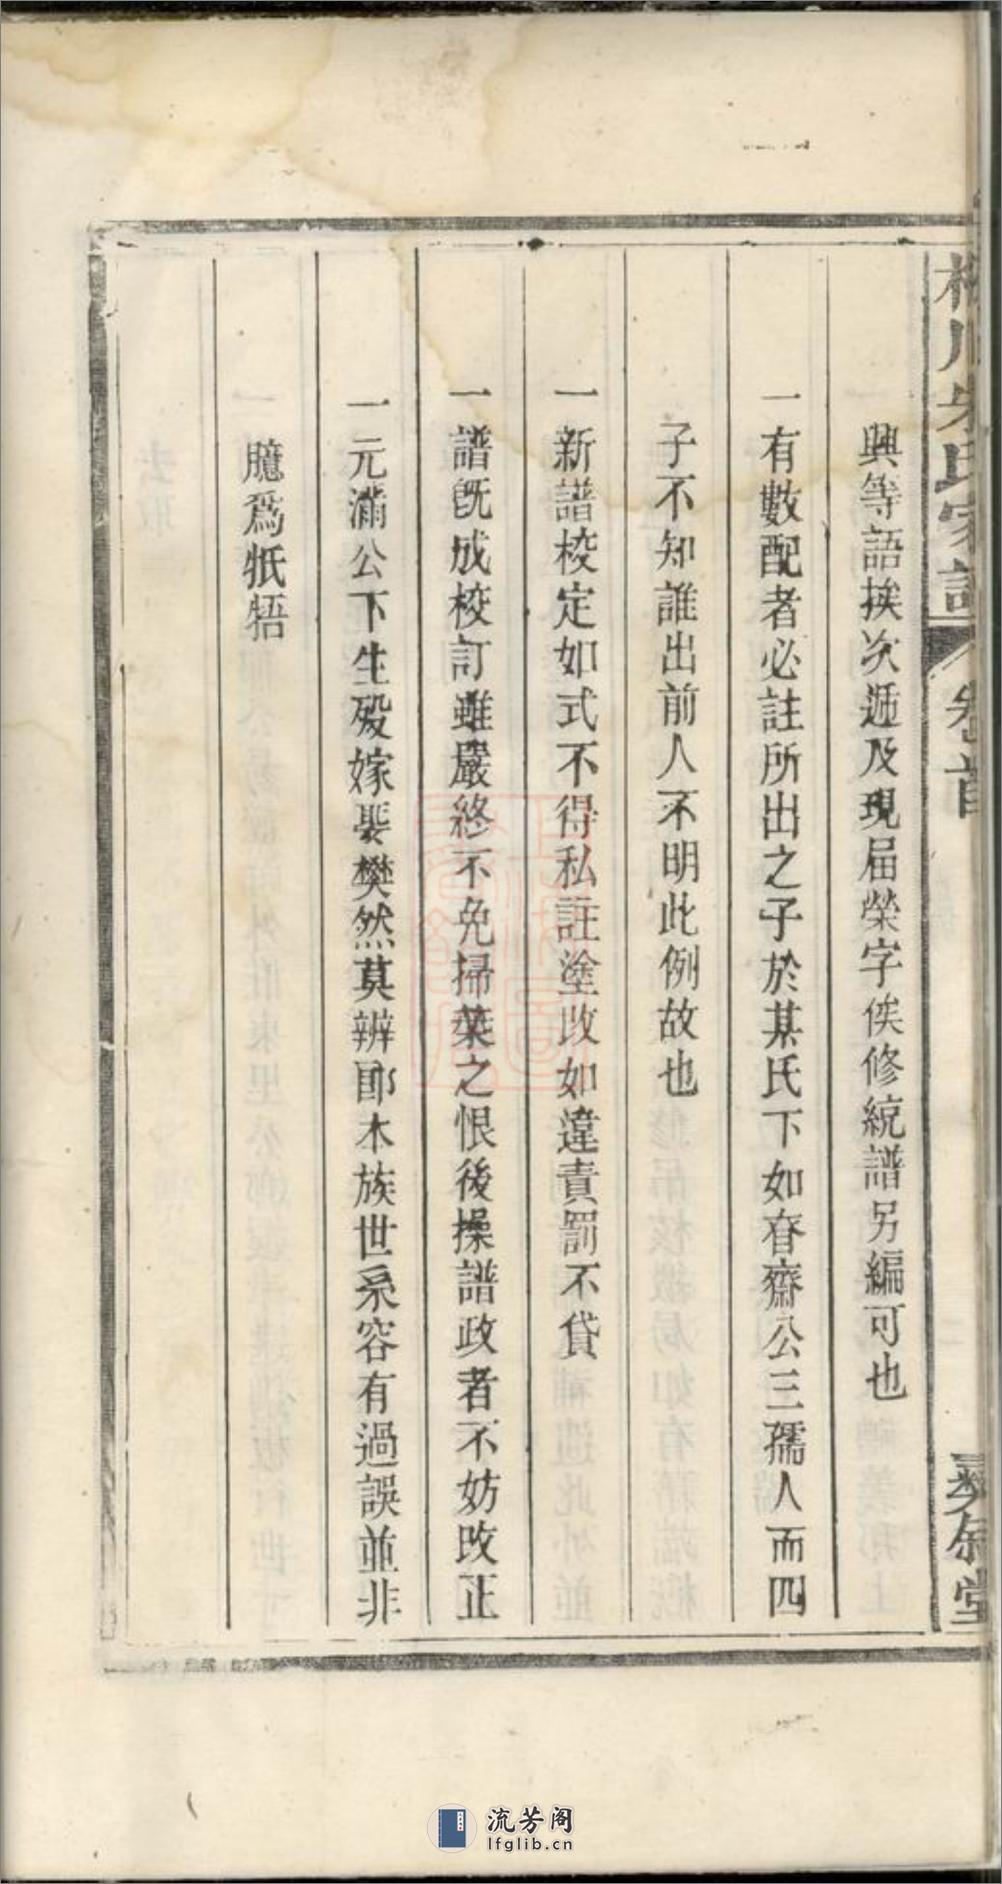 川朱氏家譜 卷首 彝叙堂
興等語挨次遞及現屆榮字俟修統譜另編可也
一有數配者必註所出之子於某氏下如春齋公三孺人而四
子不知誰出前人不明此例故也
一新譜校定如式不得私註塗改如違責罰不貸
一譜既成校訂雖嚴終不免掃葉之恨後操譜政者不妨改正
一元滿公下生歿嫁娶樊然莫辨即木族世系容有過誤並非
臆爲牴牾
流芳阁
lfglib.cn